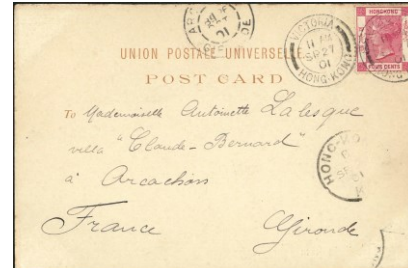 HONG KONG
VICTORIA
11 AM
SP 27
01
HONG-KONG
UNION POSTALE UNIVERSELLE
POST CARD
To Mademoiselle Antoinette Lalesque
villa "Claude-Bernard"
à Arcachon
France Gironde
HONG-KO